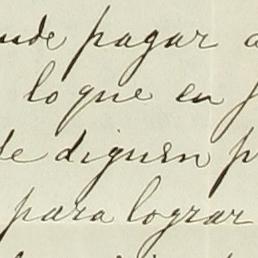 pagar a
lo que en
de diguen p
para lograr